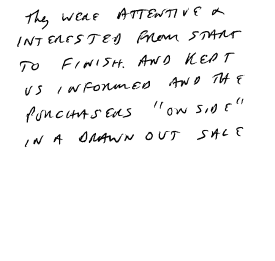 They WERE ATTENTIVE &
INTERESTED FROM START
TO FINISH. AND KEPT
US INFORMED AND THE
PURCHASERS "ON SIDE"
IN A DRAWN OUT SALE